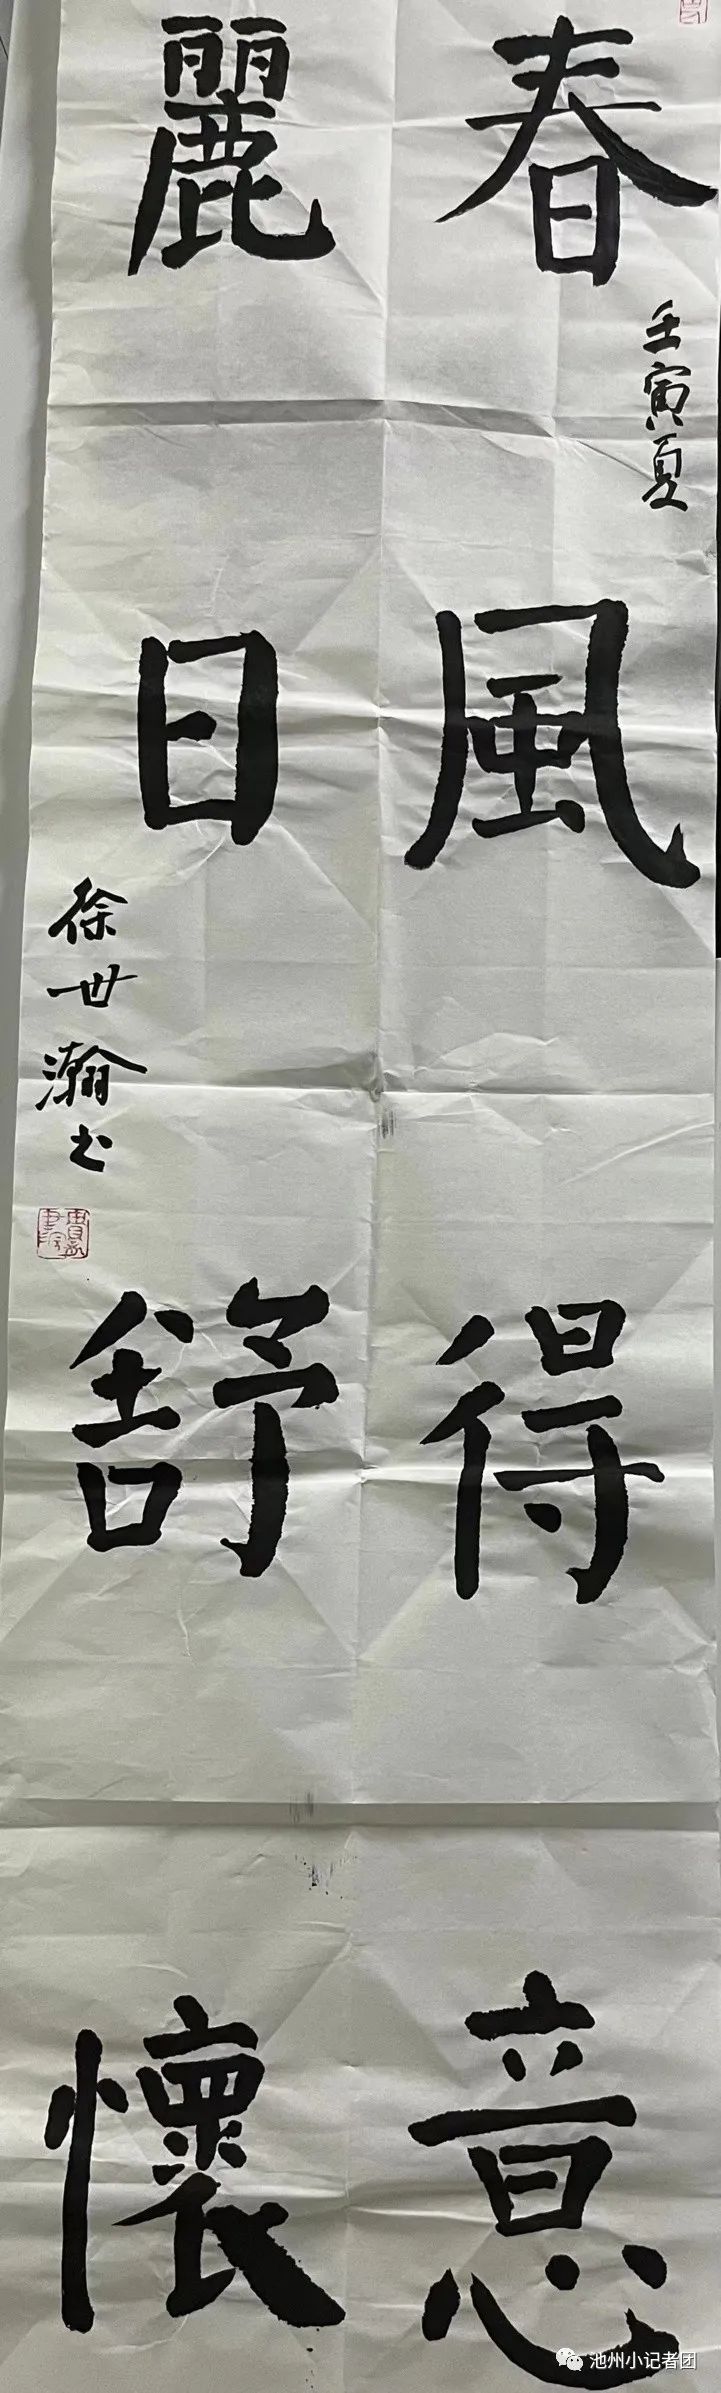 春風得意
壬寅夏
麗日舒懷
徐世瀚书
池州小记者团